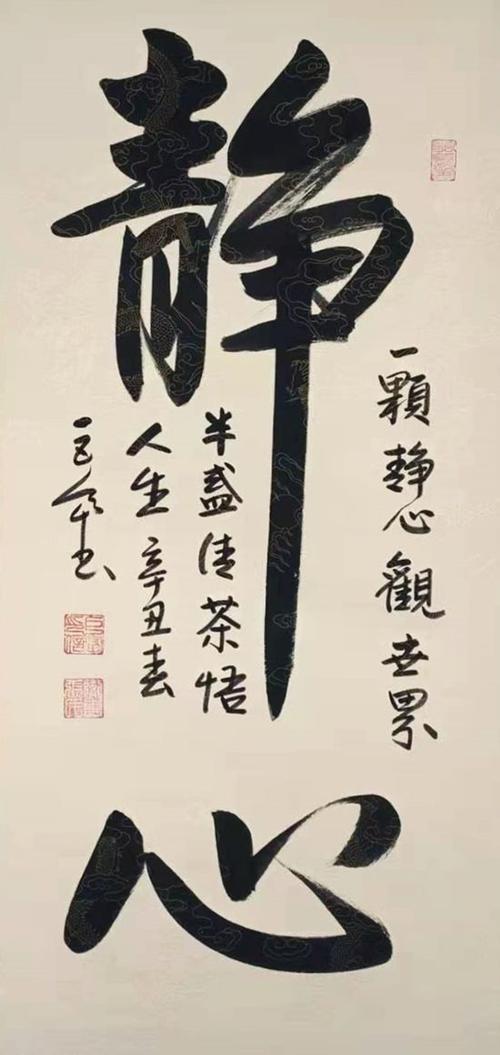 静心
一顆静心觀世累
半盏清茶悟
人生 辛丑春